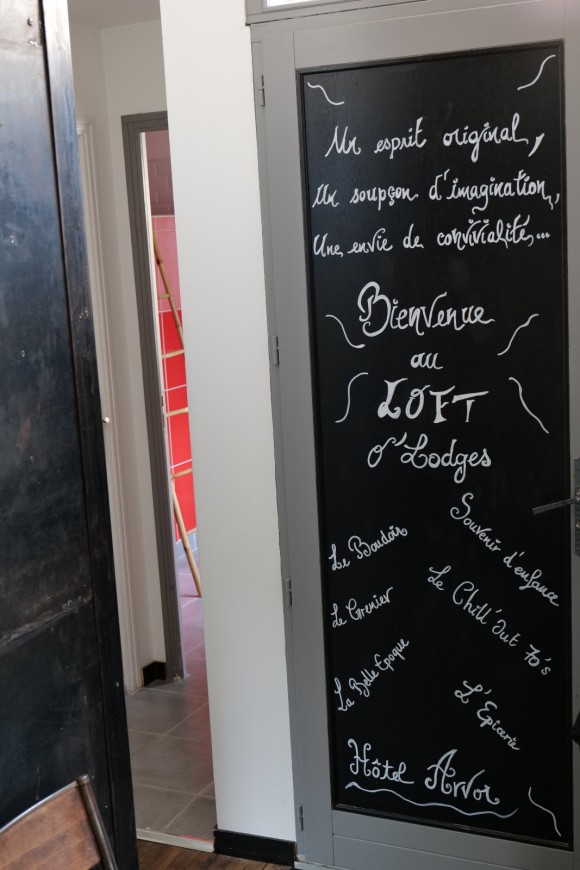 Un esprit original,
Un soupçon d'imagination,
Une envie de convivialité...
Bienvenue
au
LOFT
O'Lodges
Souvenir d'enfance
Le Boudoir
Le Chill'Out 70's
Le Grenier
La Belle Epoque
L'Epicerie
Hôtel Arvor